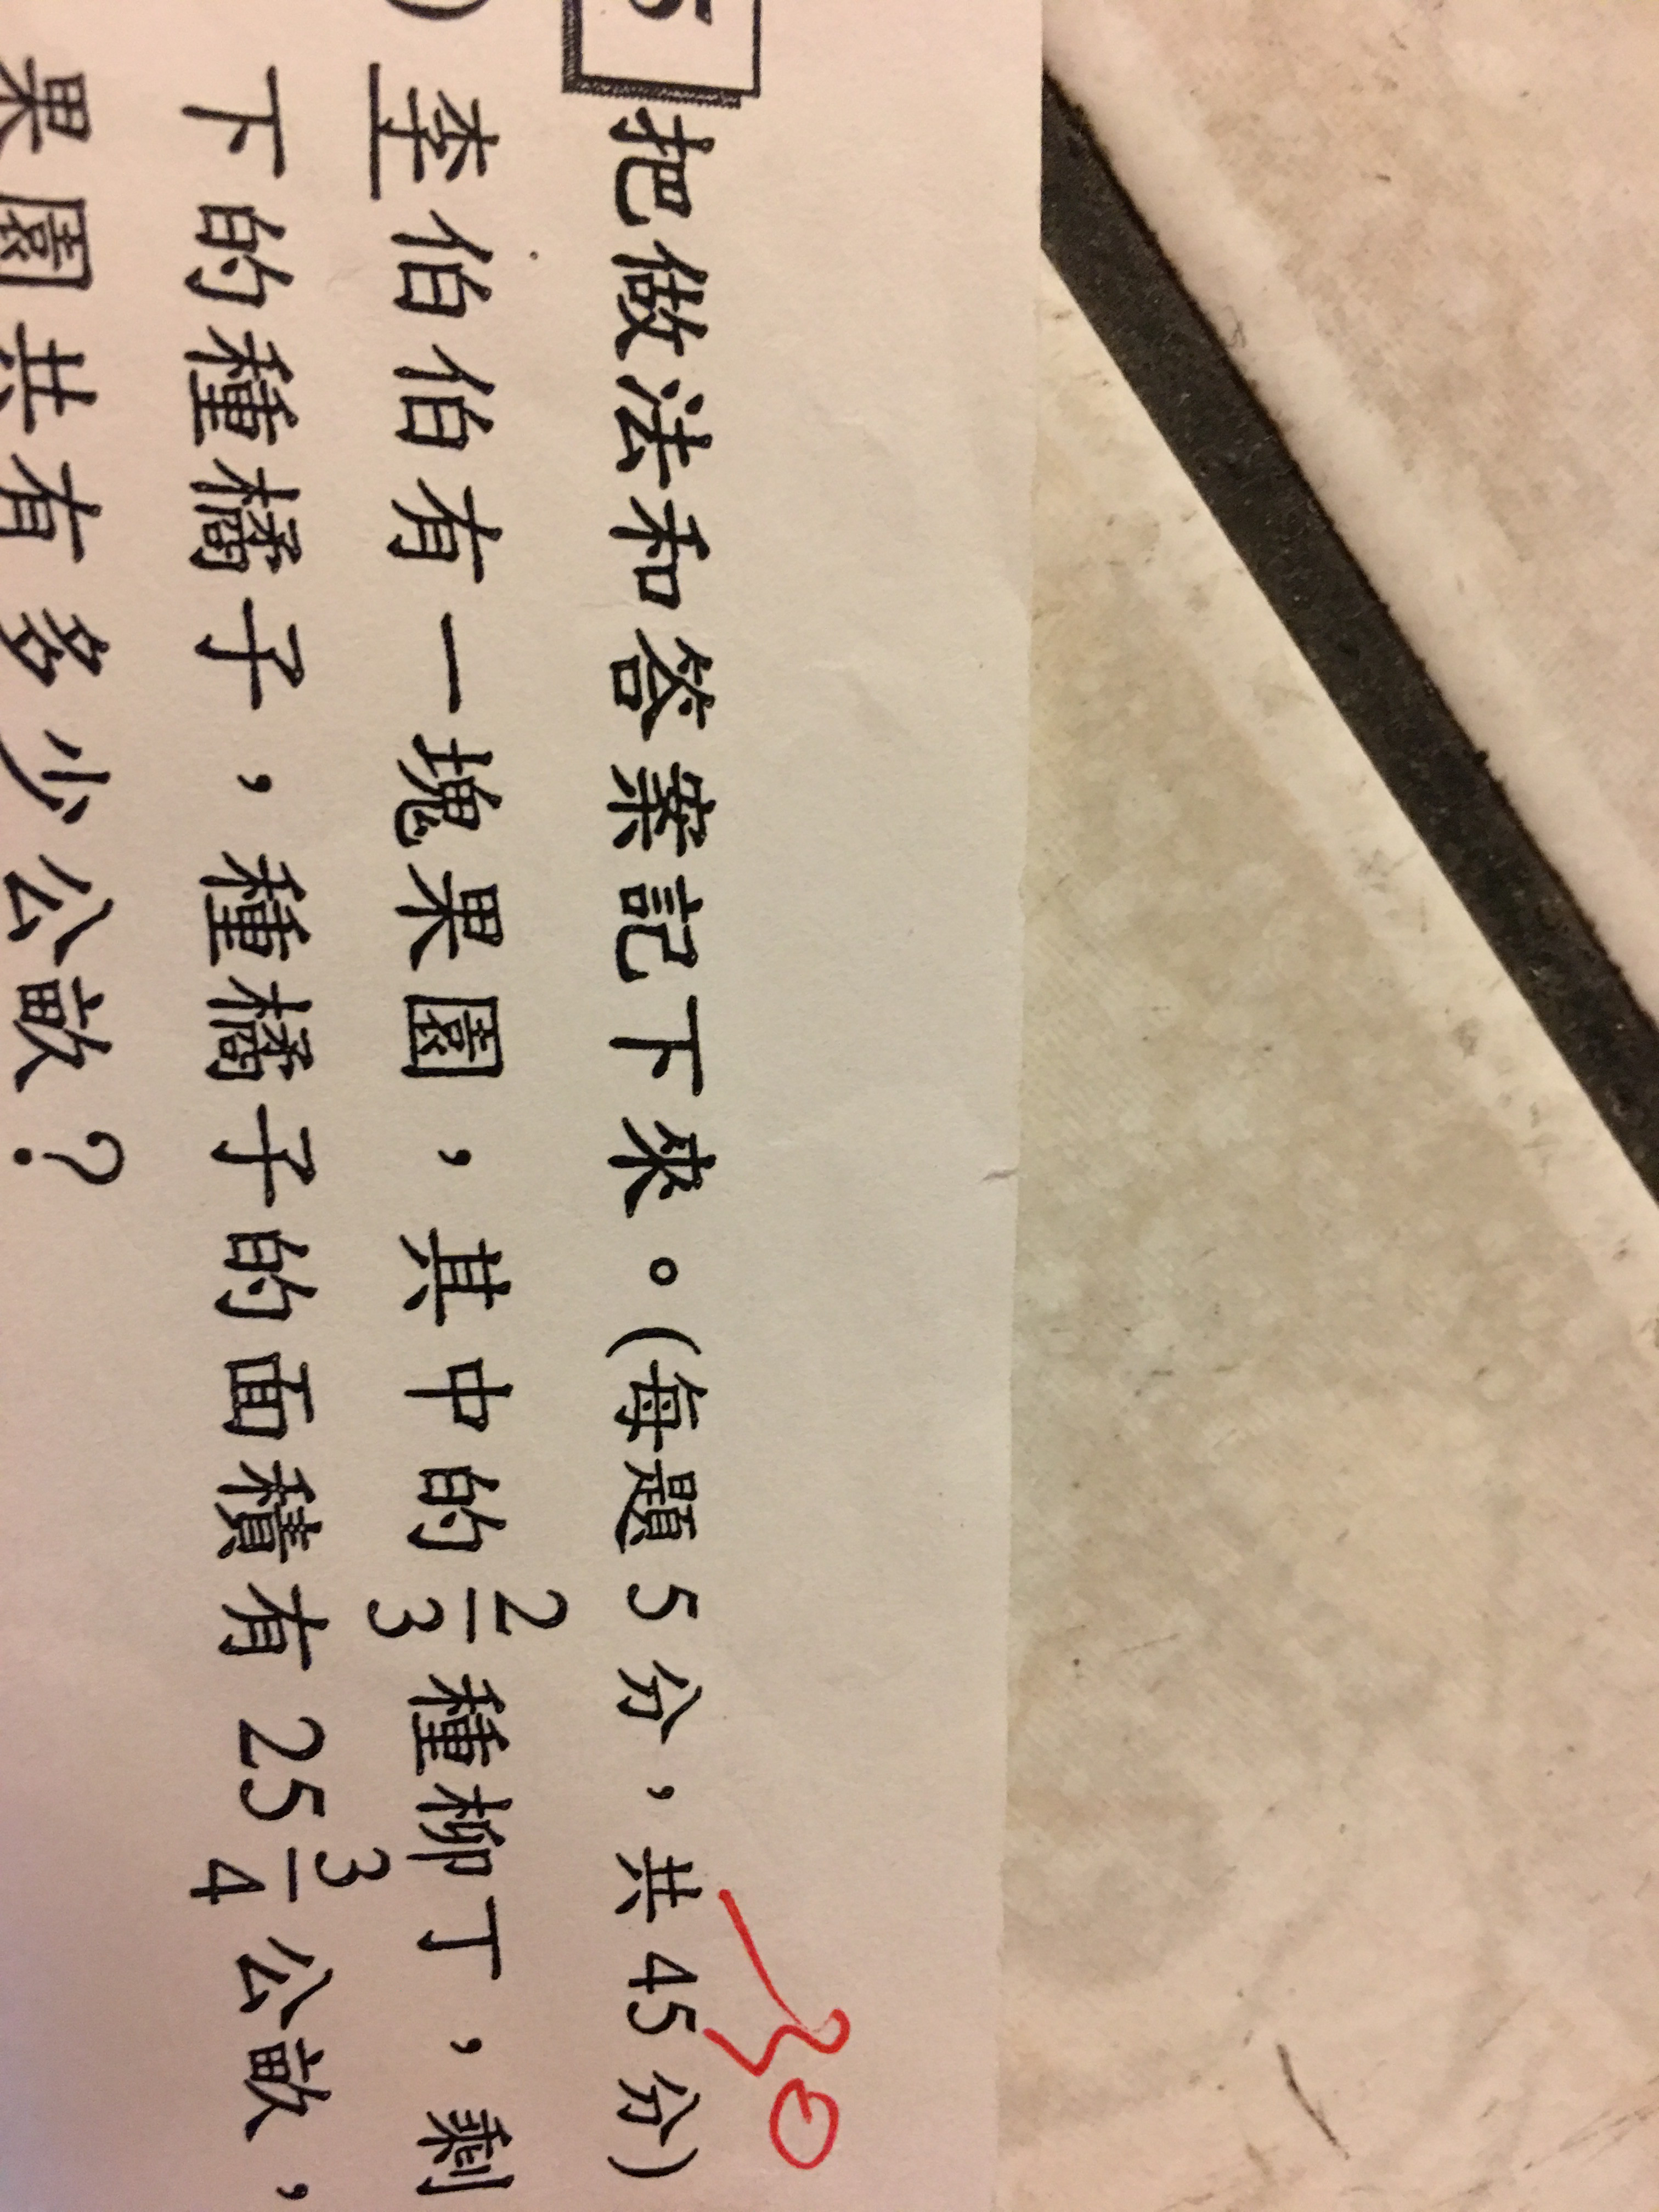 5 把做法和答案記下來。(每題5分,共45分)
30
李伯伯有一塊果園,其中的 2/3 種柳丁,剩
下的種橘子,種橘子的面積有 25 3/4 公畝,
果園共有多少公畝?